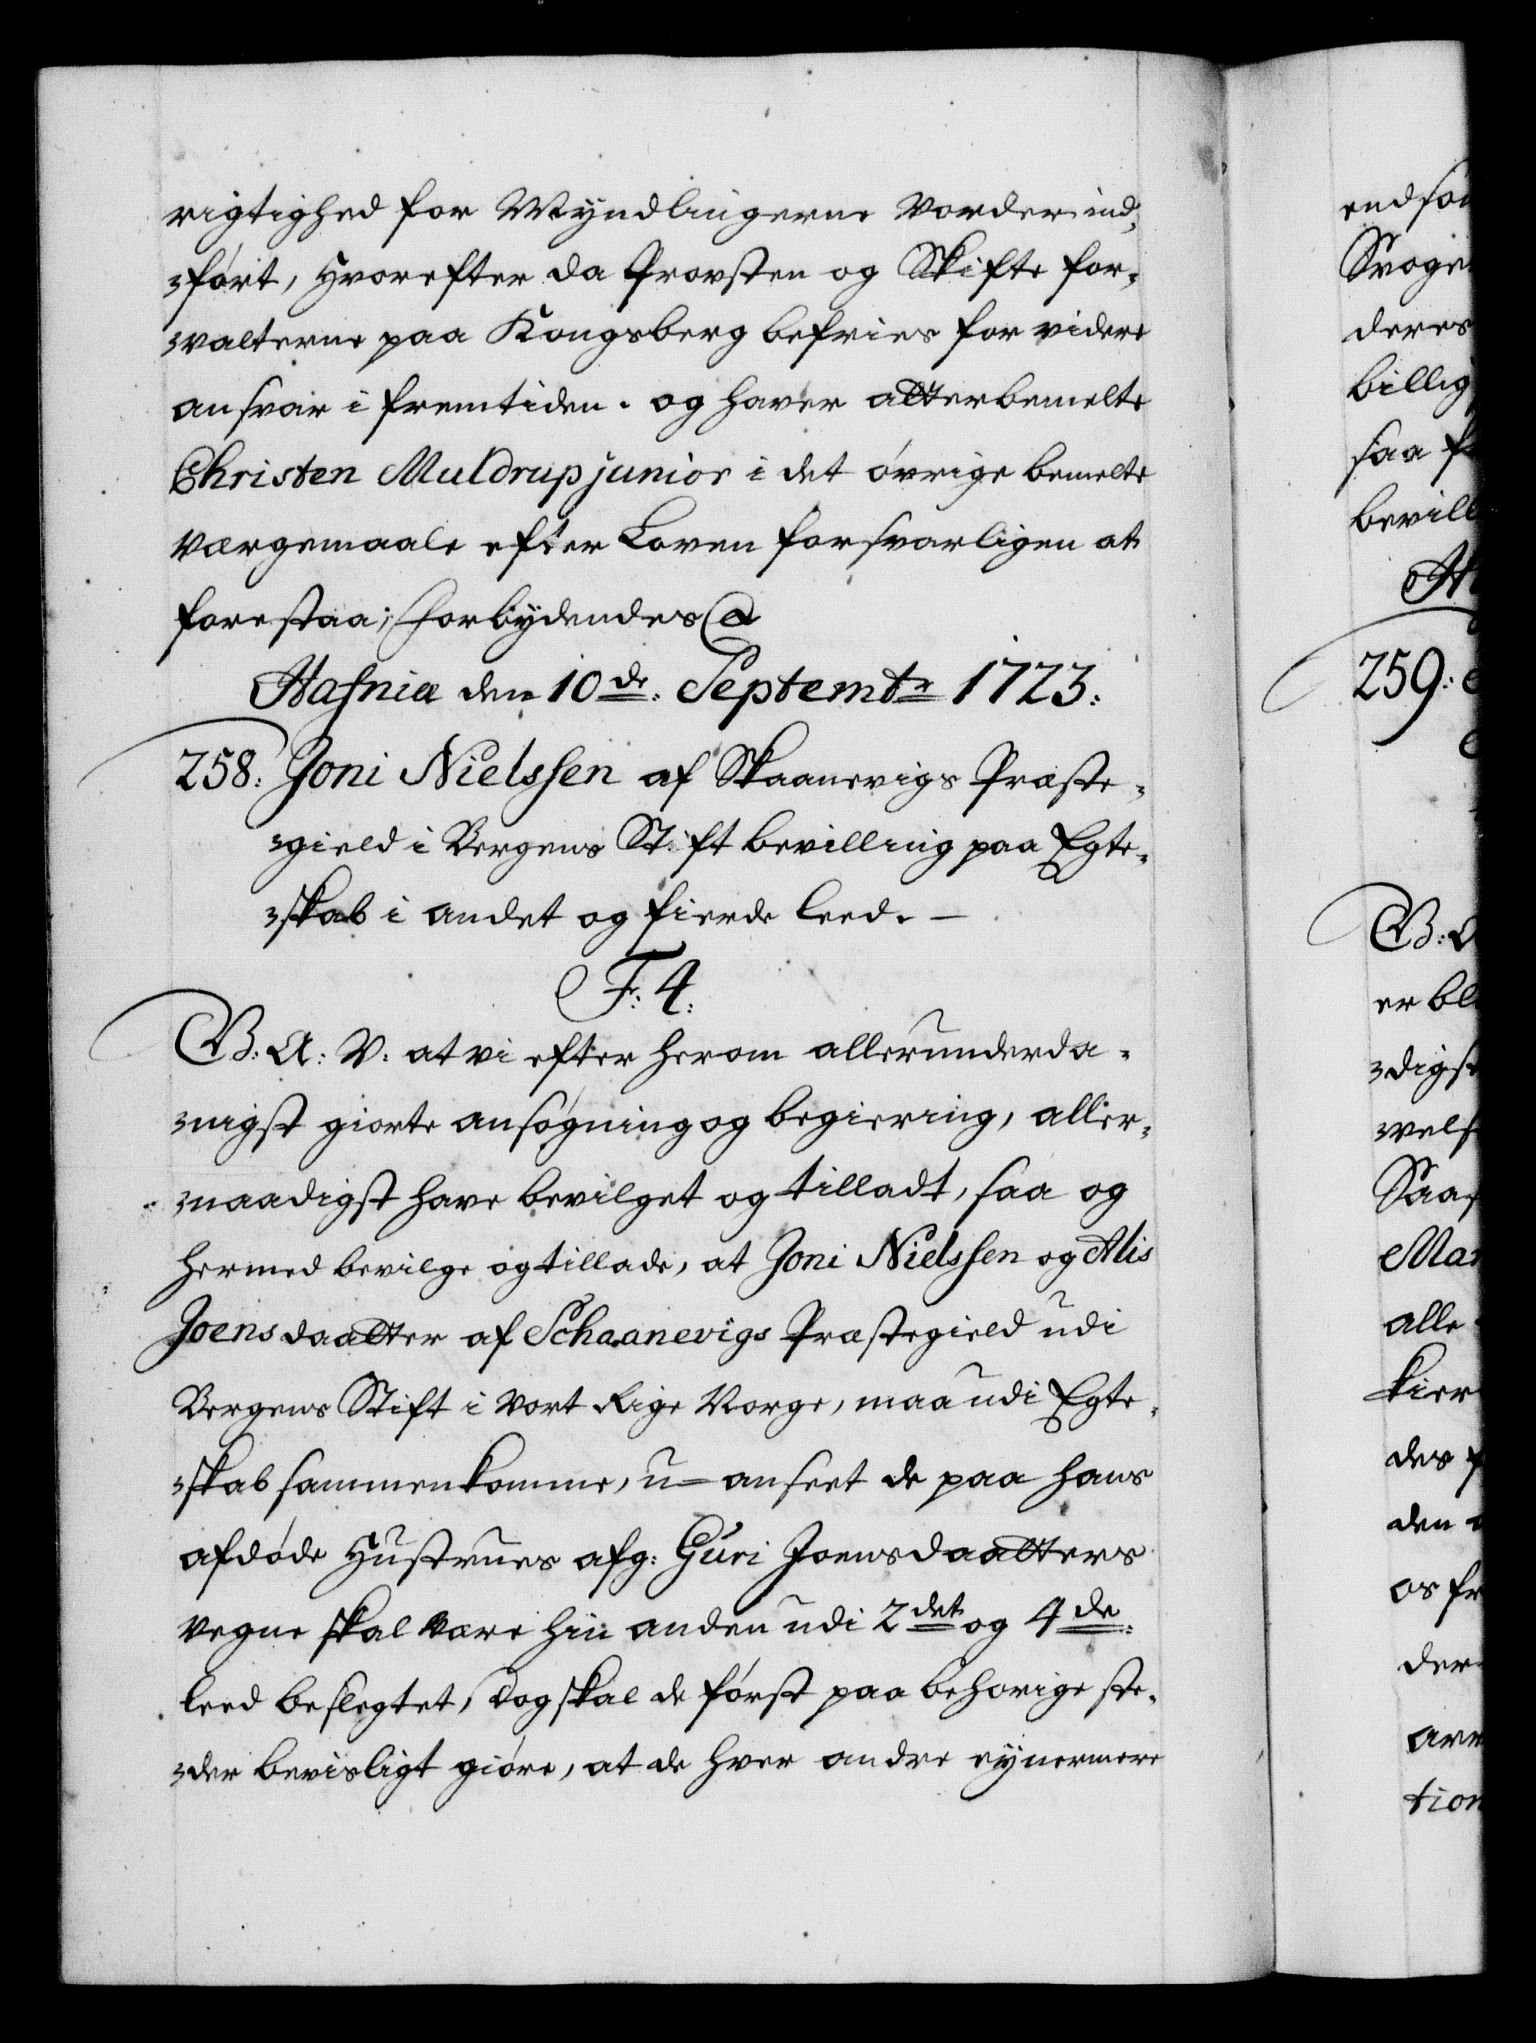 rigtighed for Myndlingerne vorder ind-
ført, hvorefter da Provsten og Skifte for-
valterne paa Kongsberg befries for videre
ansvar i fremtiden. og haver atterbemelte
Christen Muldrup junior i det øvrige bemelte
værgemaale efter Loven forsvarligen at
forestaa; Forbydendes &
Hafniæ den 10de: Septembr 1723:
258: Joni Nielssen af Skaanevigs Præste-
gield i Bergens Stift bevilling paa Egte-
skab i andet og fierde leed. —
F: 4:
G: A: V: at vi efter herom allerunderda-
nigst giorte ansøgning og begiering, aller-
naadigst have bevilget og tilladt, saa og
hermed bevilge og tillade, at Joni Nielssen og Alis
Joensdaatter af Schaanevigs Præstegield udi
Bergens Stift i vort Rige Norge, maa udi Egte-
skab sammenkomme, u-anseet de paa hans
afdøde Hustrues afg: Guri Joensdaatters
vegne skal være hin anden udi 2det og 4de:
leed beslegtet, dog skal de først paa behørige ste-
der bevisligt giøre, at de hver andre ey nermere
259:
billig
saa
der